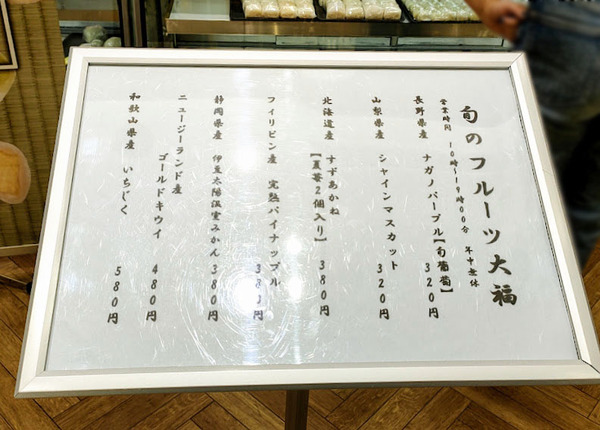 旬のフルーツ大福
営業時間 10時〜19時00分 年中無休
長野県産 ナガノパープル【旬葡萄】 320円
山梨県産 シャインマスカット 320円
北海道産 すずあかね【夏苺2個入り】 380円
フィリピン産 完熟パイナップル 380円
静岡県産 伊豆太陽温室みかん 380円
ニュージーランド産 ゴールドキウイ 480円
和歌山県産 いちじく 580円